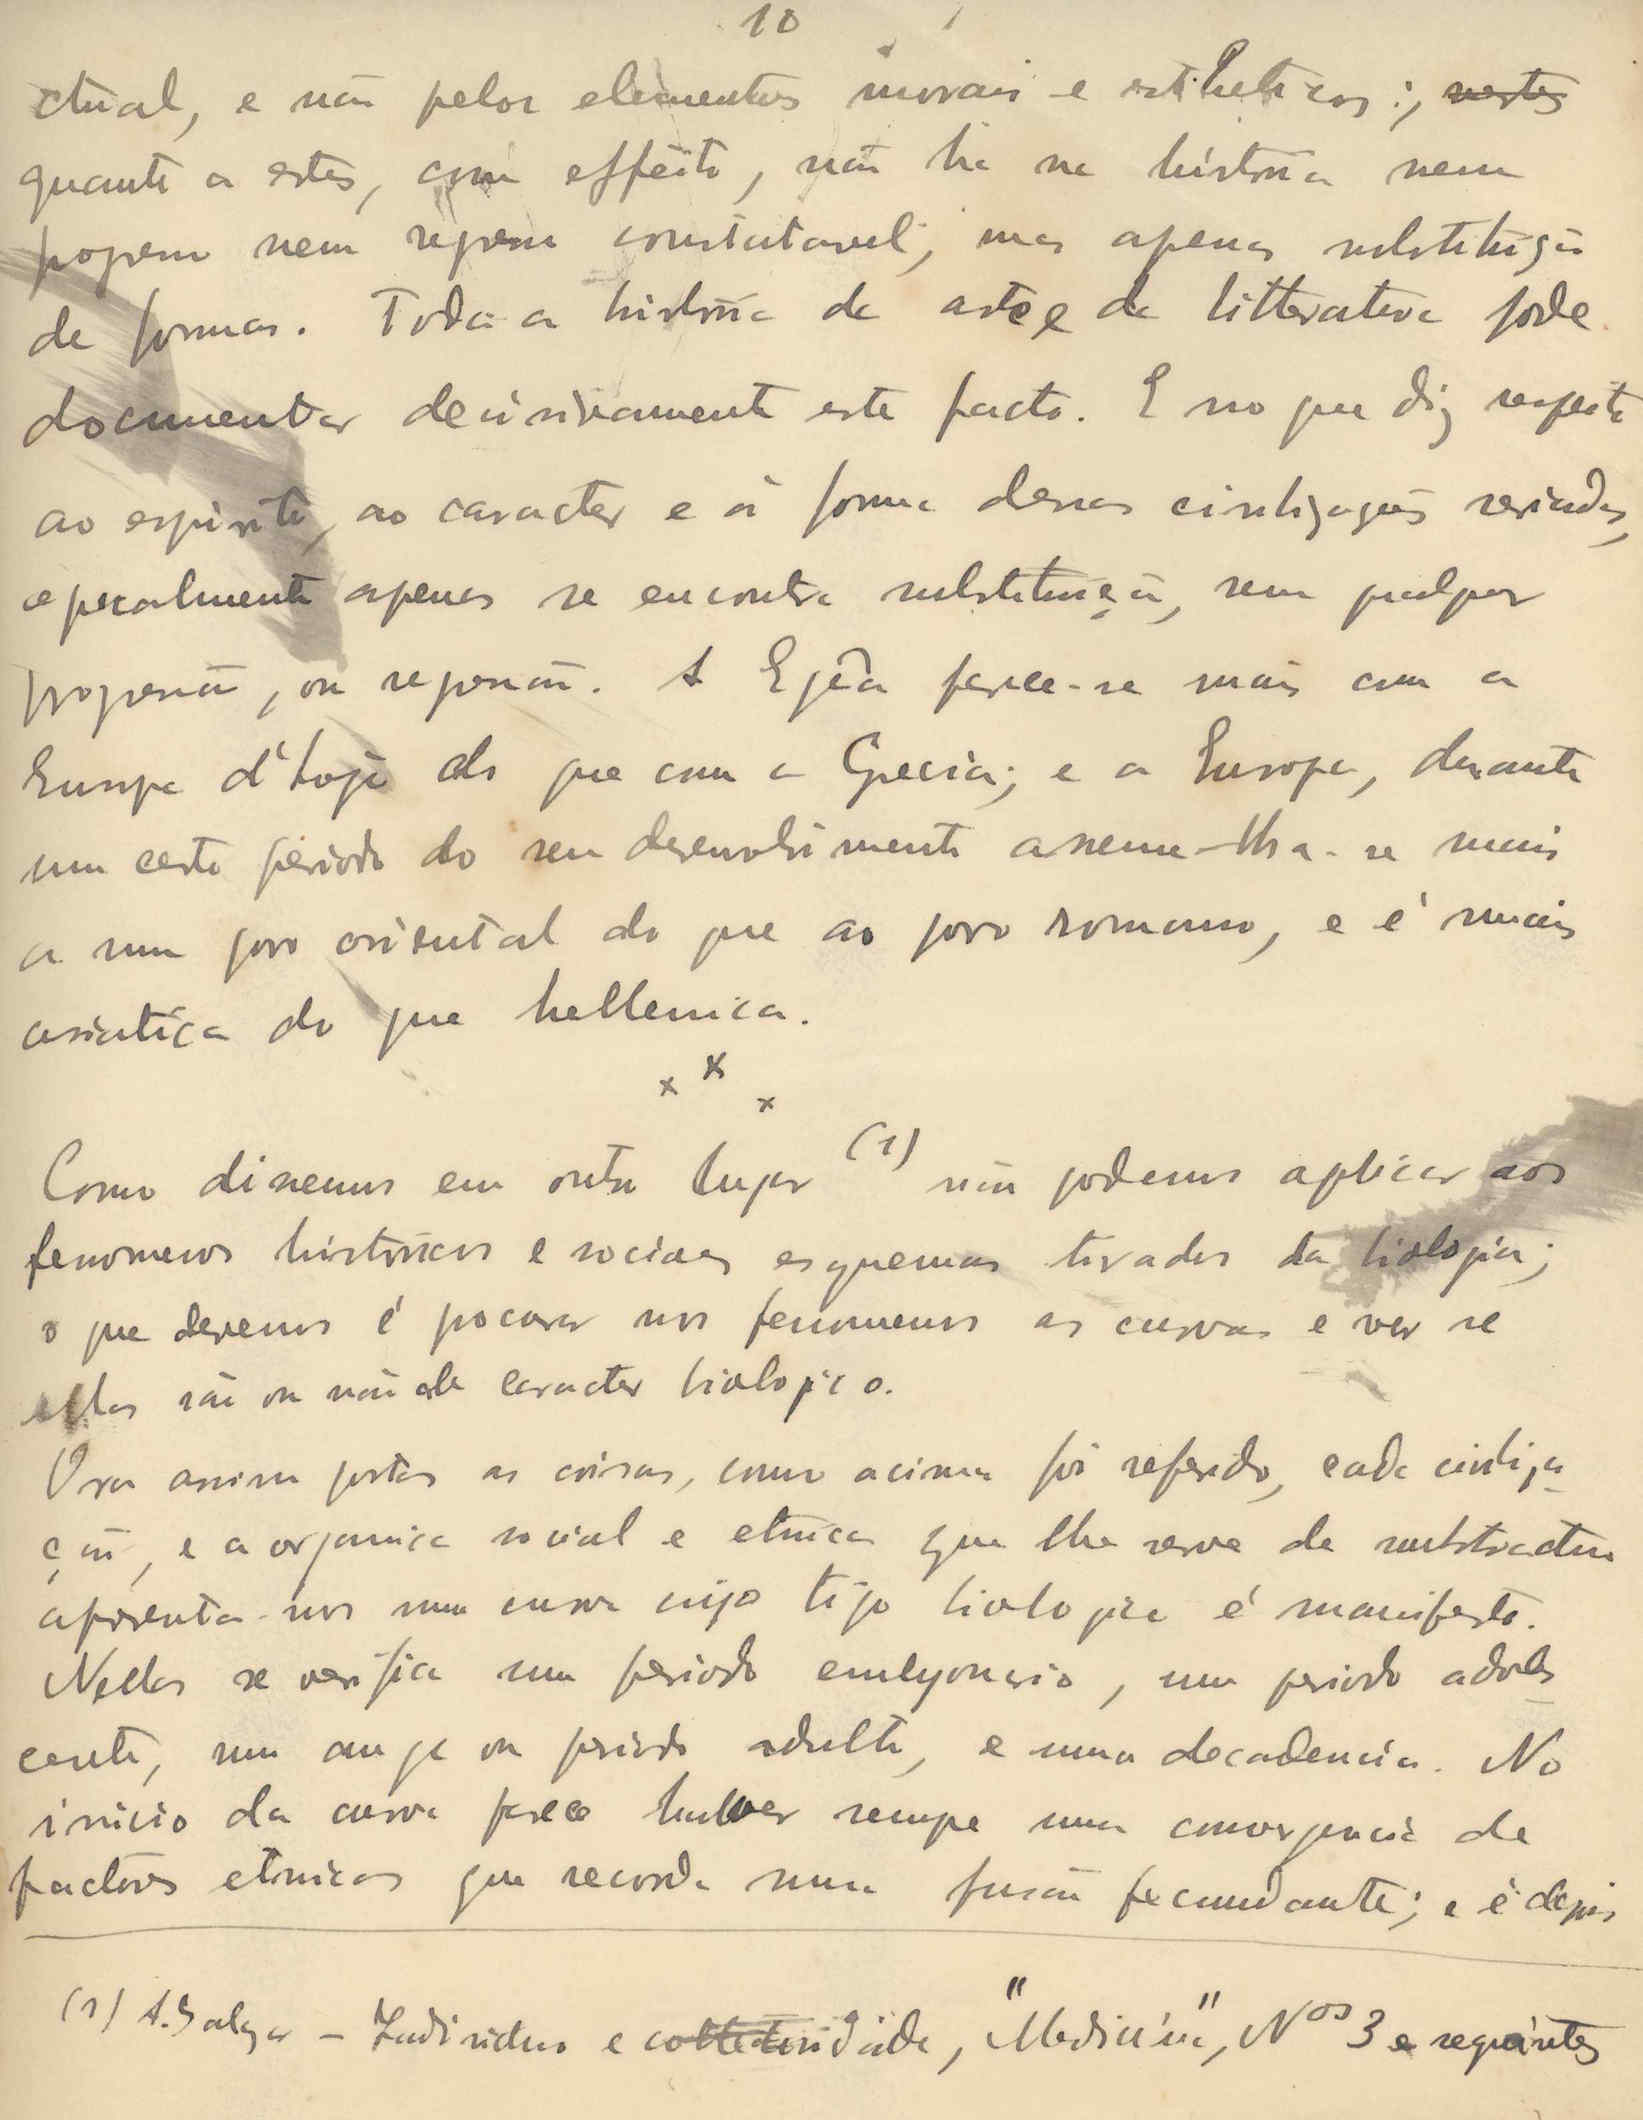 10
ctual, e não pelos elementos moraes e estheticos; nestes
quanto a estes, com effeito, não ha na história nem
progresso nem regresso constatavel, mas apenas substituição
de formas. Toda a história da arte e da litteratura pode
documentar decisivamente este facto. E no que diz respeito
ao espirito, ao caracter e á forma dessas civilizações seriadas,
geralmente apenas se encontra substituição, sem qualquer
progressão, ou regressão. A Egêa parece-se mais com a
Europa d'hoje do que com a Grecia; e a Europa, durante
um certo periodo do seu desenvolvimento assemelha-se mais
a um povo oriental do que ao povo romano, e é mais
asiatica do que hellenica.
x x x
Como dissemos em outro lugar (1) não podemos aplicar aos
fenomenos históricos e sociaes esquemas tirados da biologia;
o que devemos é procurar nos fenomenos as curvas e ver se
ellas são ou não de caracter biologico.
Ora assim postas as coisas, como acima foi referido, cada civiliza-
ção, e a organica social e etnica que lhe serve de substractum
apresenta-nos uma curva cujo tipo biologico é manifesto.
Nellas se verifica um periodo embryonario, um periodo adoles-
cente, um auge ou periodo adulto, e uma decadencia. No
inicio da curva parece haver sempre uma convergencia de
factores etnicos que recorda uma fusão fecundante; e é depois
(1) A. Salazar – Individuo e collectividade, "Medicina", Nos 3 e seguintes